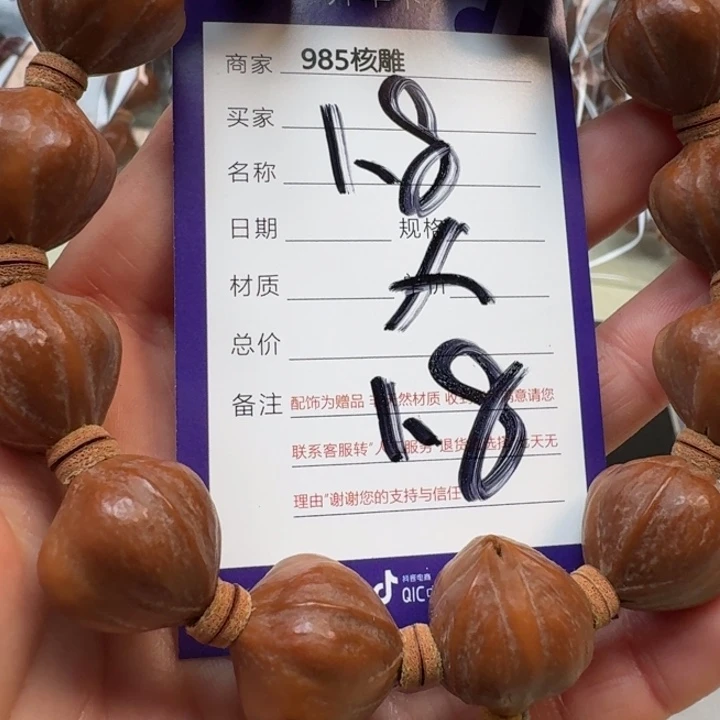 商家 985核雕
买家
1.8
名称
日期 规格
×
材质 单价
总价
1.8
备注 配饰为赠品 非天然材质 收到 满意请您
联系客服转"人工服务"退货 选择 七天无
理由"谢谢您的支持与信任
抖音电商
QIC